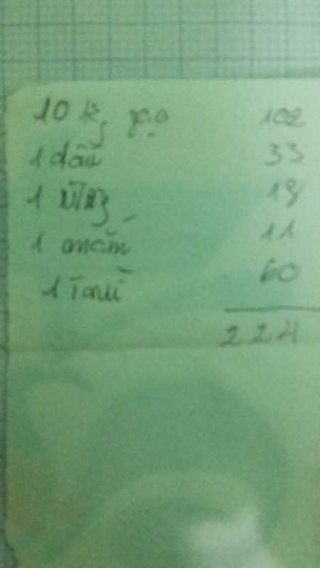 10 kg gạo 102
1 dầu 33
1 18
1 mắm 11
1 60
224